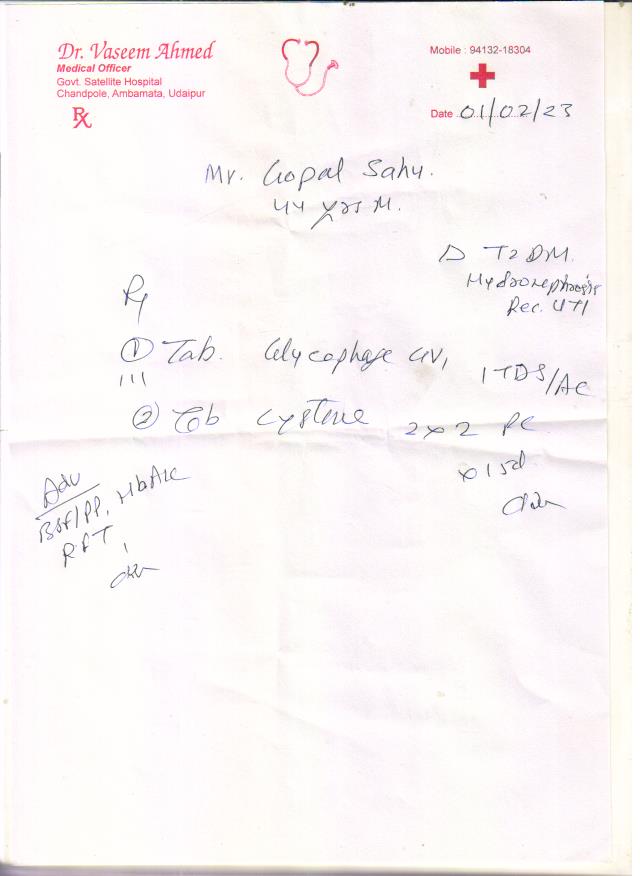 Dr. Vaseem Ahmed
Medical Officer
Govt. Satellite Hospital
Chandpole, Ambamata, Udaipur
Rx
Mobile : 94132-18304
Date 01/02/23
Mr. Gopal Sahu.
44 yrs M.
D T2 DM.
Hydronephrosis
Rec. UTI
Rx
① Tab. Glycophage 1 TDS/AC
② Tb Cystone 2x2 PC
x 15d
Adv
BSF/PP, HbA1c
RFT